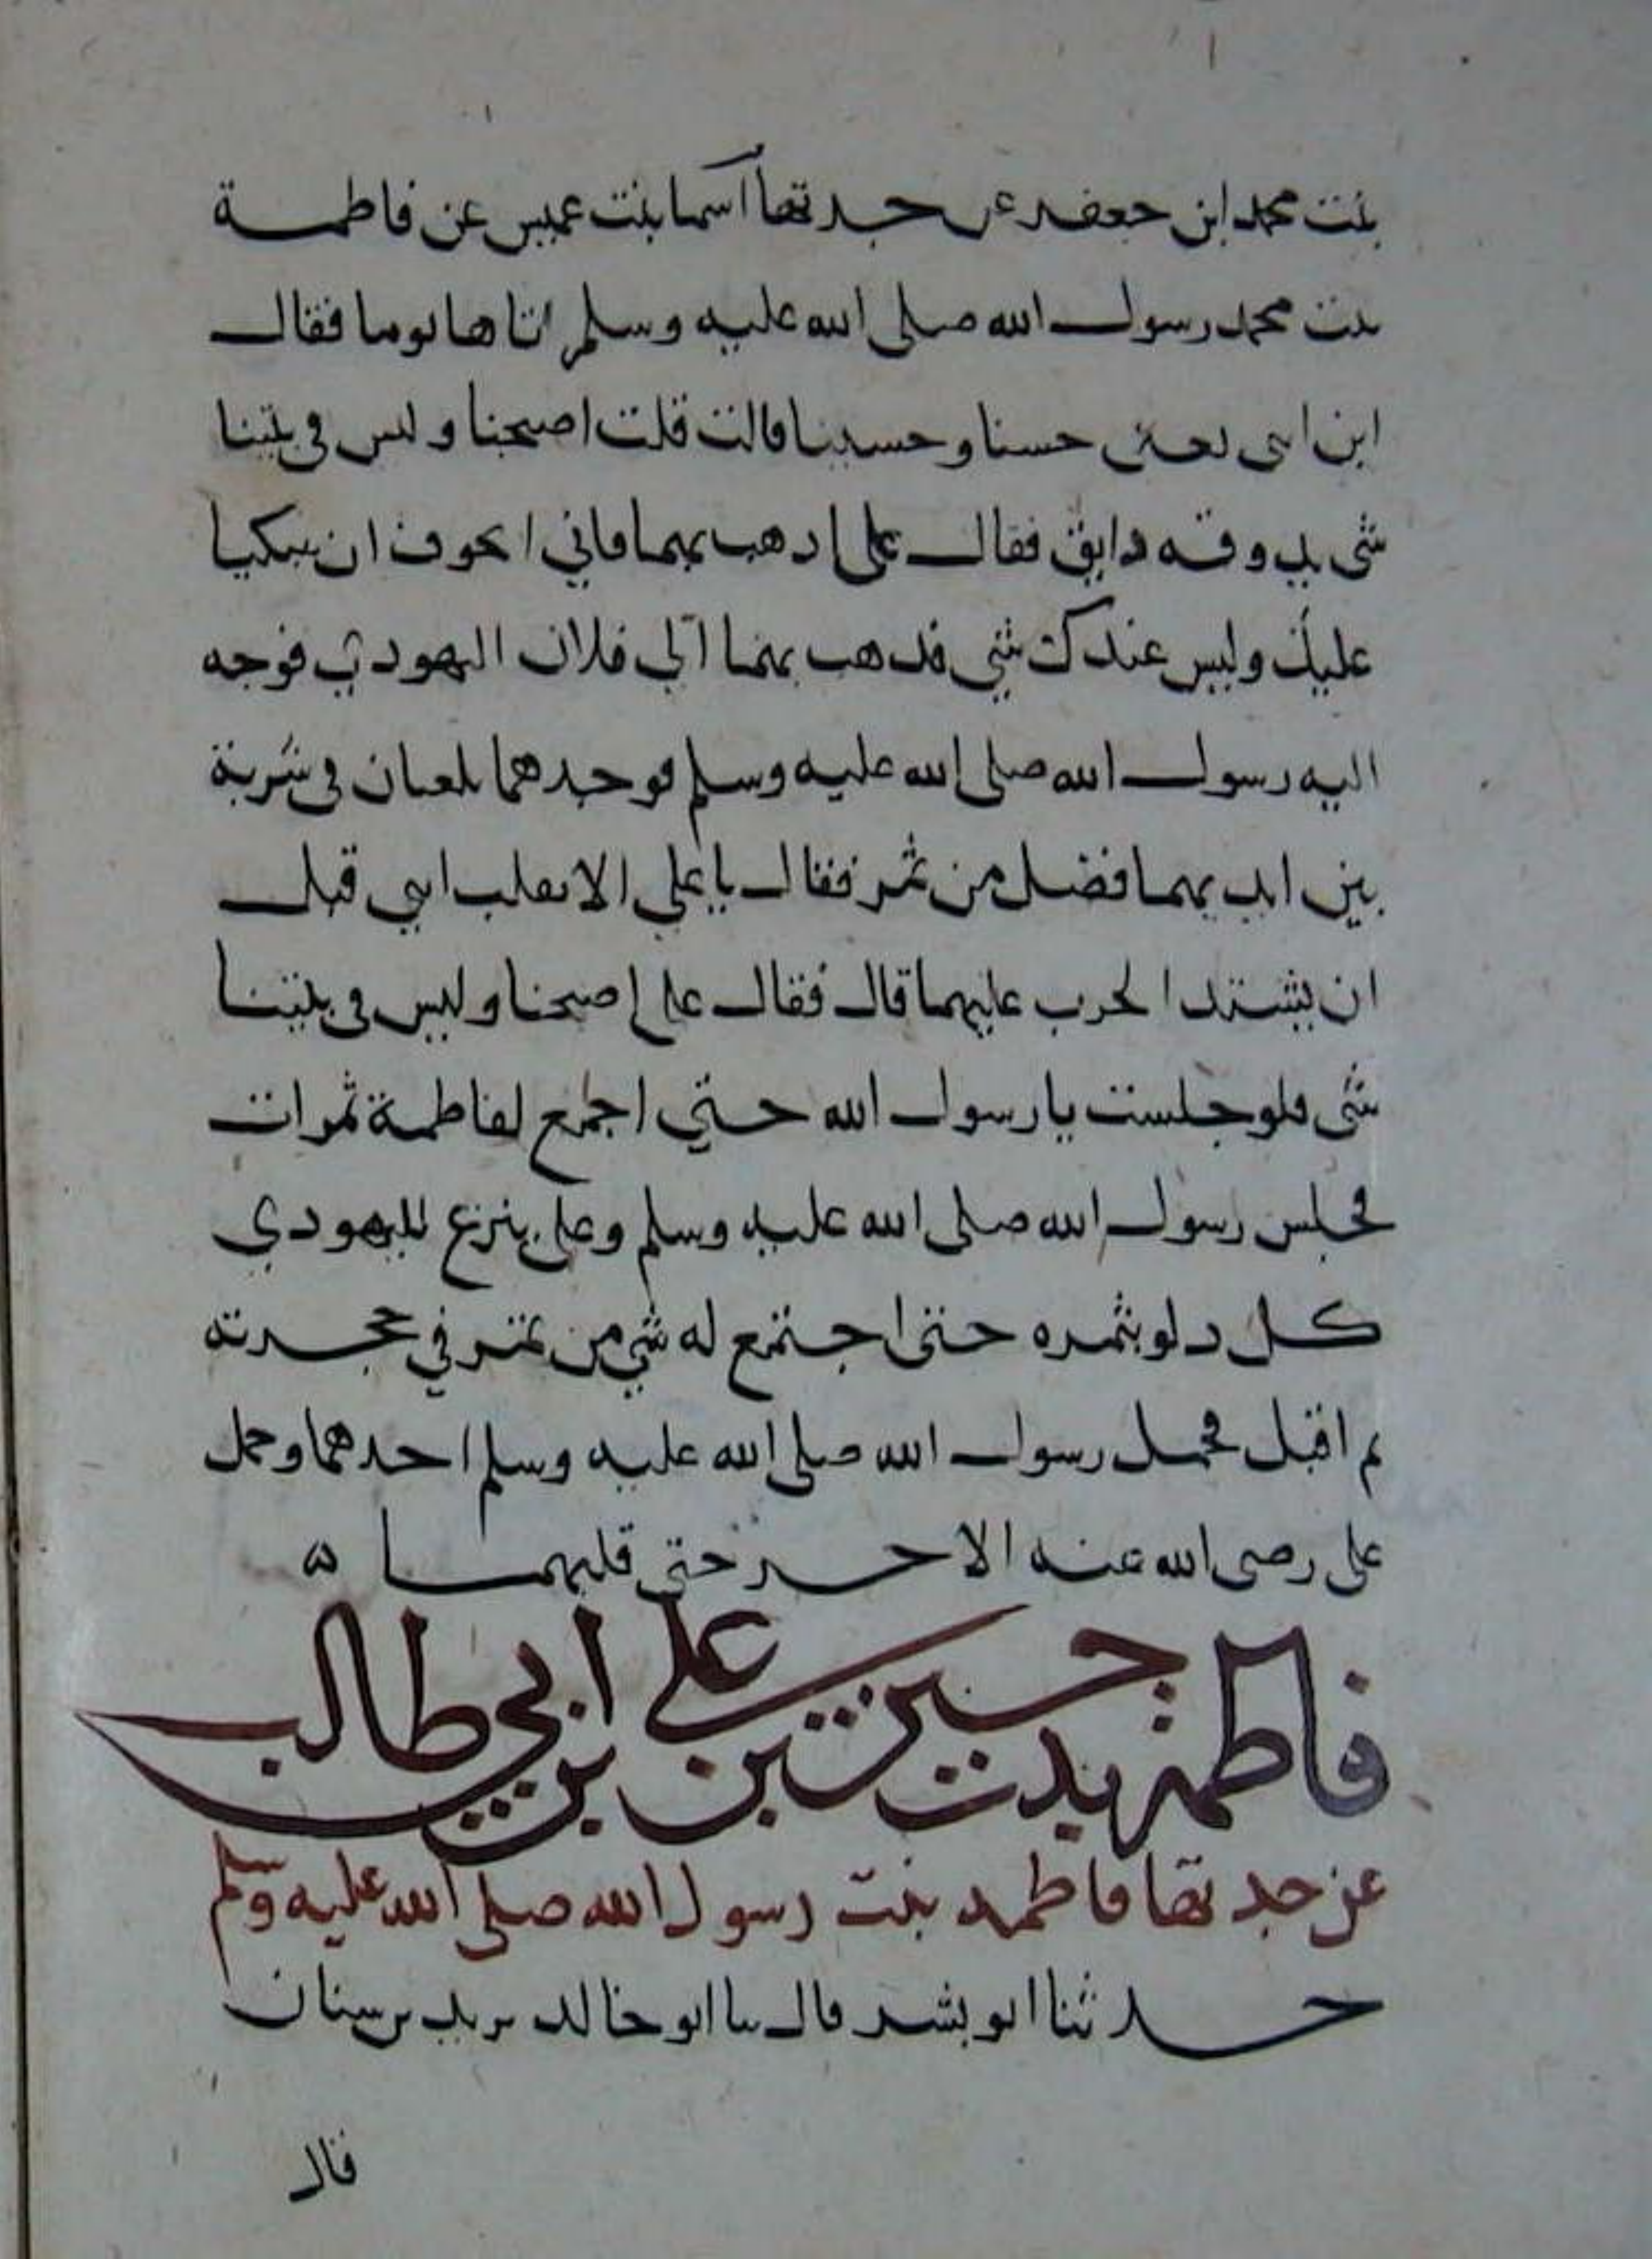 بنت محمد ابن جعفر عن جدتها اسما بنت عميس عن فاطمة
بنت محمد رسول الله صلى الله عليه وسلم اتاها يوما فقال
ابن ابني يعني حسنا وحسينا قالت قلت اصبحنا وليس في بيتنا
شي يذوقه ذايق فقال علي اذهب بهما فاني اتخوف ان يبكيا
عليك وليس عندك شي فذهب بهما الي فلان اليهودي فوجه
اليه رسول الله صلى الله عليه وسلم فوجدهما يلعبان في شربة
بين ايديهما فضل من تمر فقال يا علي الا تقلب ابني قبل
ان يشتد الحرب عليهما قال فقال علي اصبحنا وليس في بيتنا
شي فلو جلست يا رسول الله حتي اجمع لفاطمة تمرات
فجلس رسول الله صلى الله عليه وسلم وعلي ينزع لليهودي
كل دلو بتمره حتي اجتمع له شي من تمر في حجرته
ثم اقبل فحمل رسول الله صلى الله عليه وسلم احدهما وحمل
علي رضي الله عنه الاخر حتي قلبهما ه
فاطمة بنت حسين بن علي بن ابي طالب
عن جدتها فاطمة بنت رسول الله صلى الله عليه وسلم
حدثنا ابو بشر قال نا ابو خالد يزيد بن سنان
قال